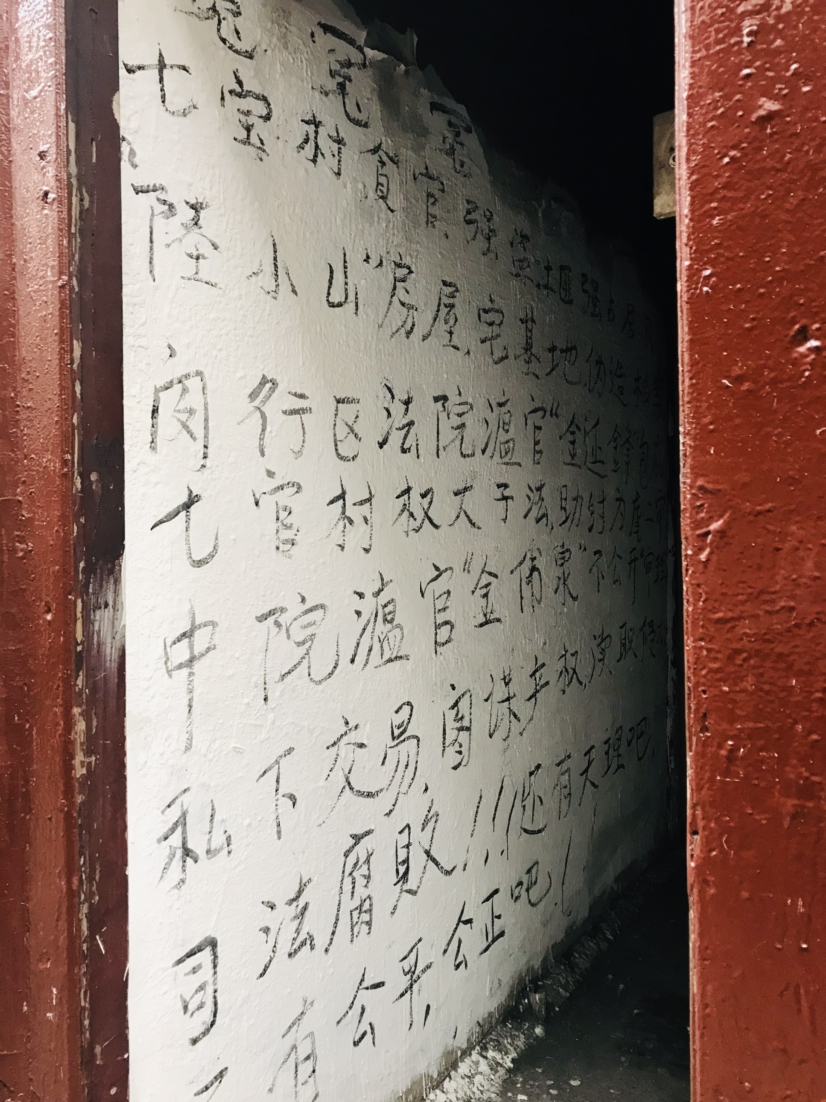 冤 冤 冤
七宝村贪官,强盗"土匪强占房
陆小山"房屋,宅基地,伪造
闵行区法院官"金延
七官村权大于法,助纣为虐二审
中院官"金伟泉"不公开审理
私下交易,图谋产权,渎职侵权
司法腐败!!!还有天理吧,
有公平,公正吧!